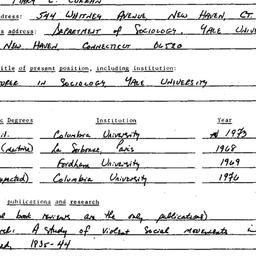 dress: 544 WHITNEY AVENUE, NEW HAVEN, CT
s address: DEPARTMENT of SOCIOLOGY, YALE UNIV
NEW HAVEN, CONNECTICUT 06520
itle of present position, including institution:
IN SOCIOLOGY YALE UNIVERSITY
c Degrees Institution Year
Columbia University 1973
La Sorbonne, Paris 1968
Fordham University 1969
pected) Columbia University 1976
publications and research
book reviews are the only publications)
A study of violent social movements in
1835-44